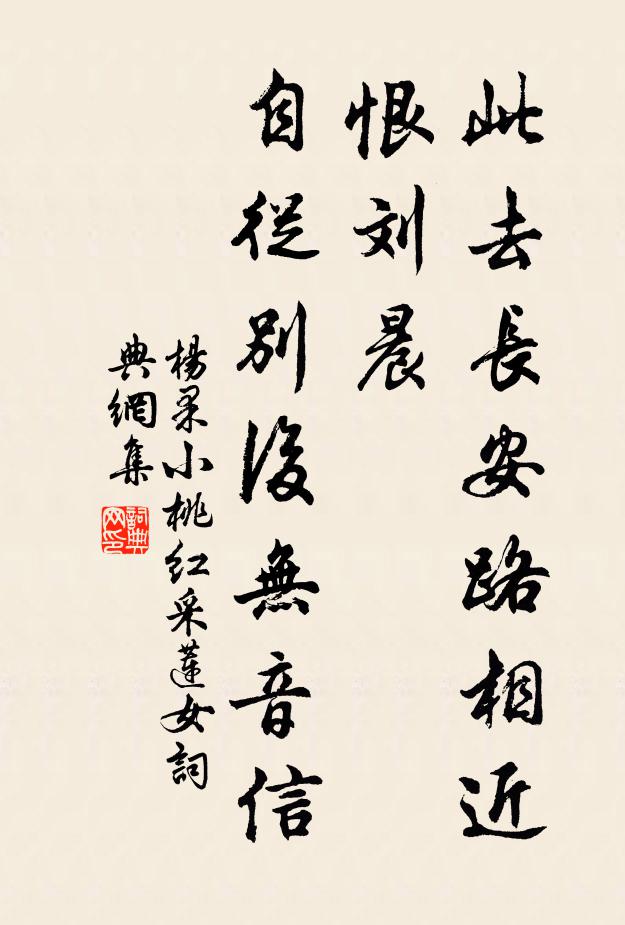 此去長安路相近
恨刘晨
自從別後無音信
楊果小桃红采蓮女詞
典網集
詞典
网印